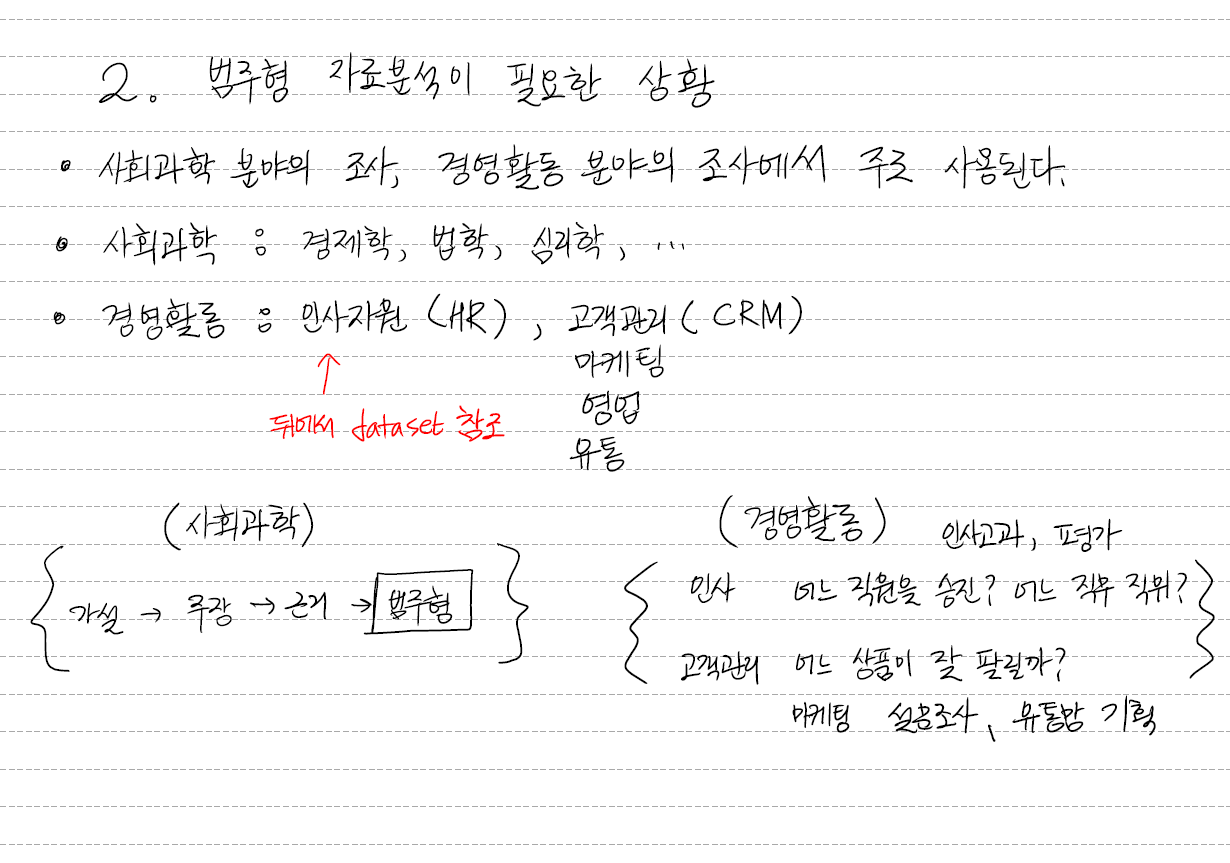 2. 범주형 자료분석이 필요한 상황
• 사회과학 분야의 조사, 경영활동 분야의 조사에서 주로 사용된다.
• 사회과학 : 경제학, 법학, 심리학, ...
• 경영활동 : 인사자원 (HR), 고객관리 (CRM)
마케팅
뒤에서 dataset 참조
영업
유통
(사회과학)
가설 → 주장 → 근거 → 범주형
(경영활동) 인사고과, 평가
인사 어느 직원을 승진? 어느 직무 직위?
고객관리 어느 상품이 잘 팔릴까?
마케팅 설문조사, 유통망 기획